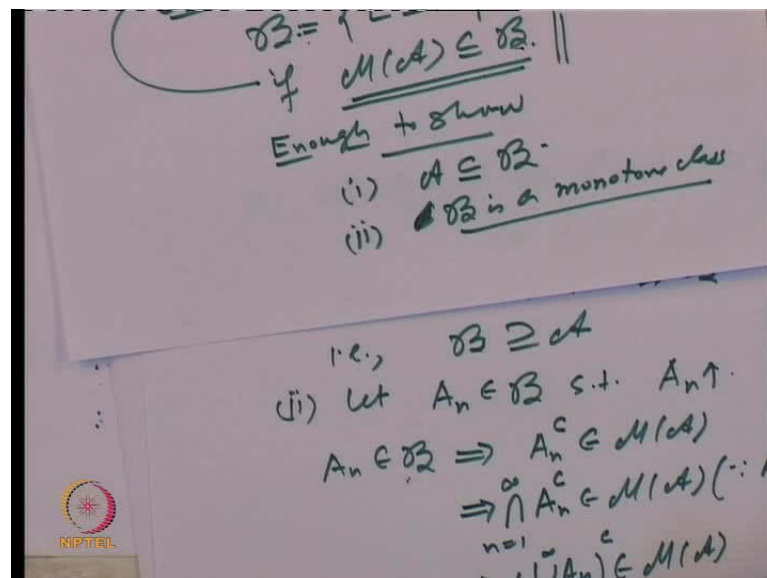 ℬ := {
if ℳ(𝒜) ⊆ ℬ. ||
Enough to show
(i) 𝒜 ⊆ ℬ.
(ii) ℬ is a monotone class
i.e., ℬ ⊇ 𝒜
(ii) Let Aₙ ∈ ℬ s.t. Aₙ↑.
Aₙ ∈ ℬ ⇒ Aₙᶜ ∈ ℳ(𝒜)
⇒ ⋂_{n=1}^∞ Aₙᶜ ∈ ℳ(𝒜) (∵ A
(⋃Aₙ)ᶜ ∈ ℳ(𝒜)
NPTEL